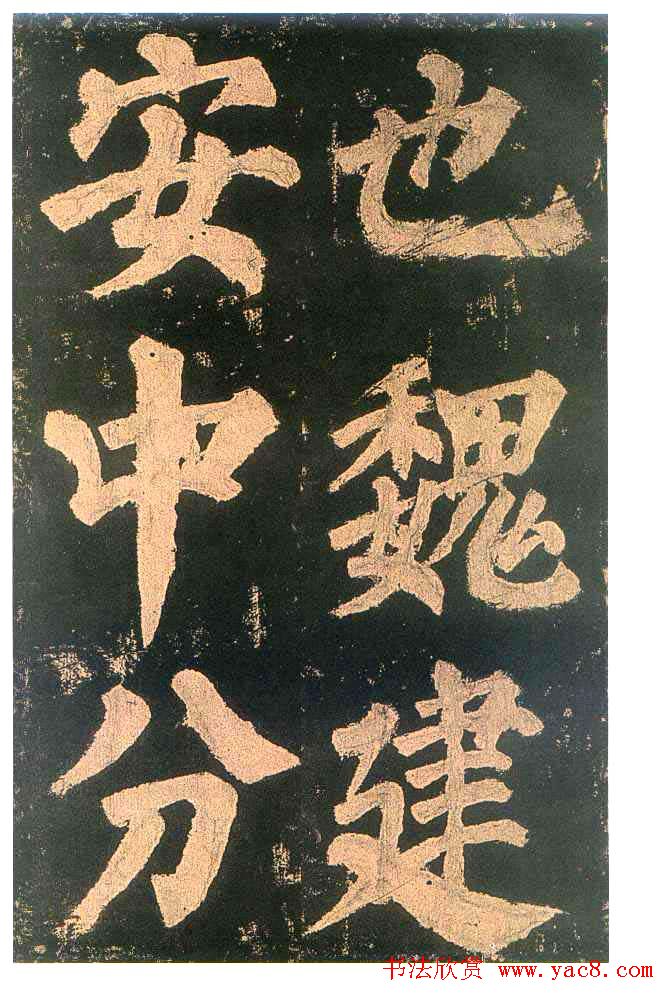 也魏建
安中分
书法欣赏 www.yac8.com